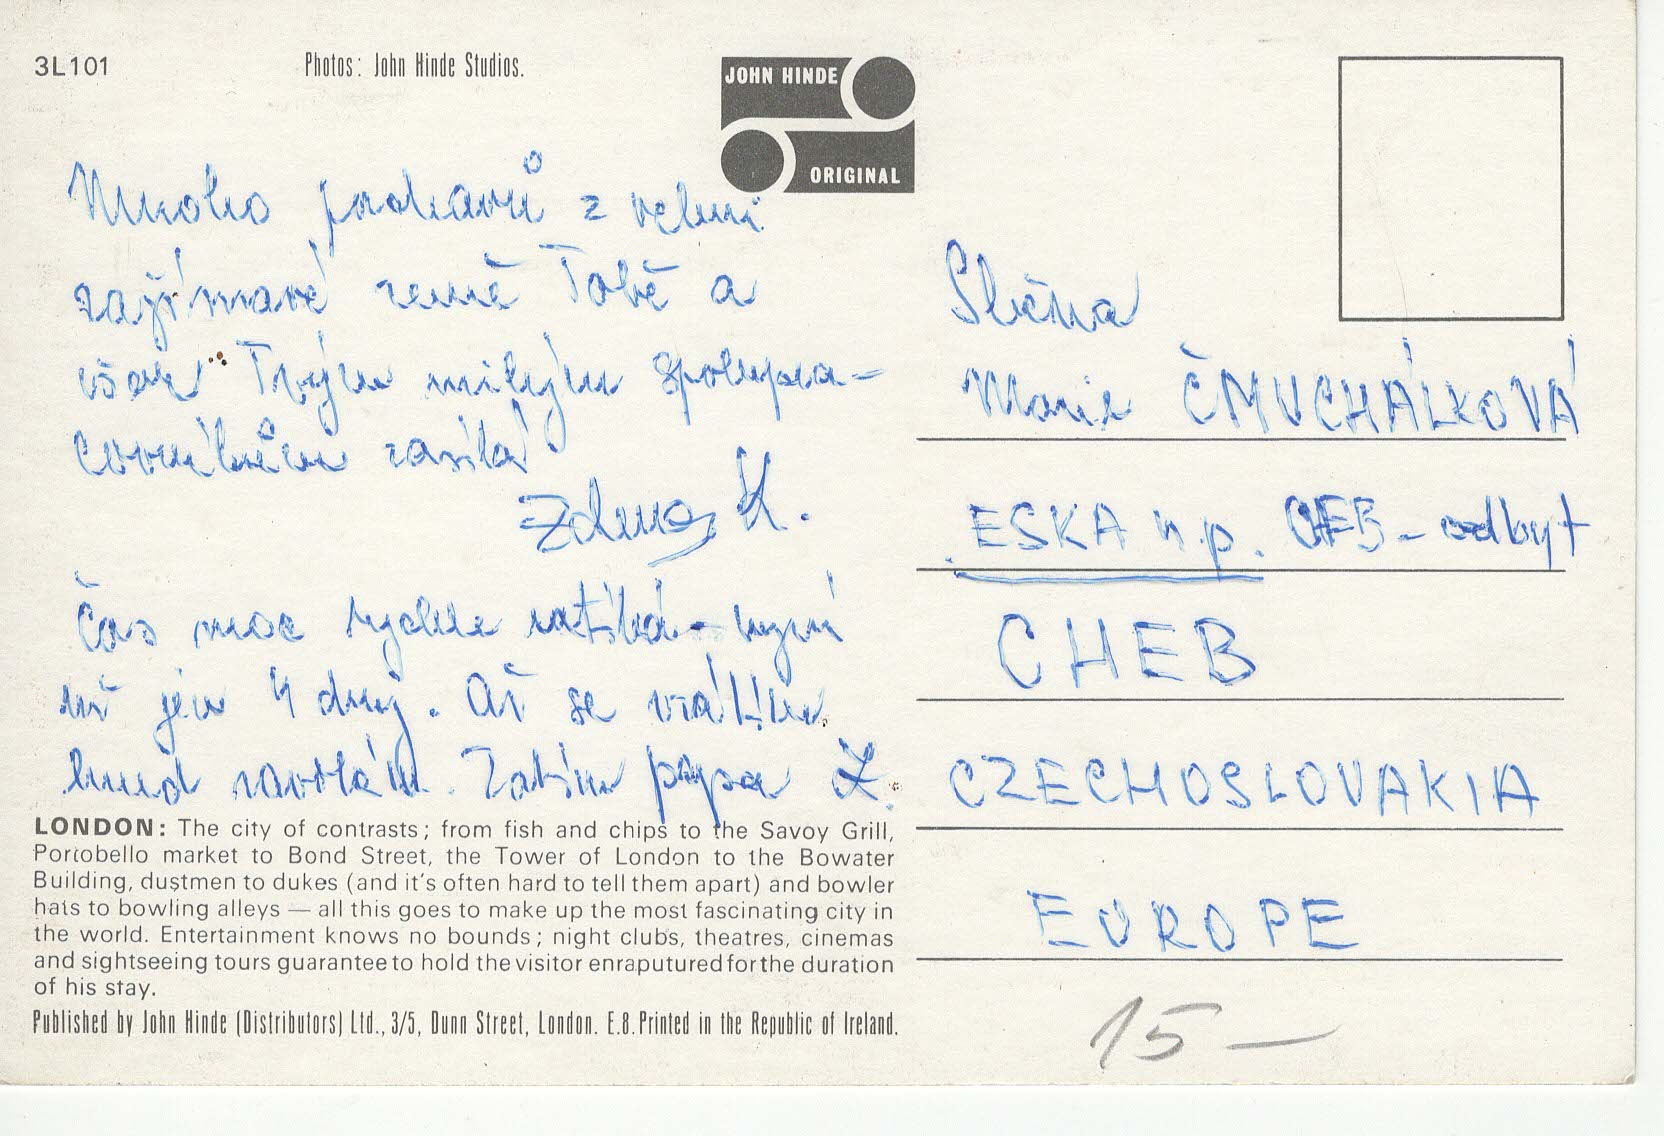 3L101
Photos: John Hinde Studios.
JOHN HINDE
ORIGINAL
Mnoho pozdravů z velmi
zajímavé země Tobě a
všem Tvým milým spolupra-
covníkům zasílá
Zdena K.
Čas moc rychle utíká - nyní
už jen 4 dny. Až se vrátím
hned zavolám. Zatím pápa Z.
LONDON: The city of contrasts; from fish and chips to the Savoy Grill,
Portobello market to Bond Street, the Tower of London to the Bowater
Building, dustmen to dukes (and it's often hard to tell them apart) and bowler
hats to bowling alleys — all this goes to make up the most fascinating city in
the world. Entertainment knows no bounds; night clubs, theatres, cinemas
and sightseeing tours guarantee to hold the visitor enraputured for the duration
of his stay.
Published by John Hinde (Distributors) Ltd., 3/5, Dunn Street, London. E.8. Printed in the Republic of Ireland.
Slečna
Marie ČMUCHÁLKOVÁ
ESKA n.p. CHEB - odbyt
CHEB
CZECHOSLOVAKIA
EUROPE
15 —